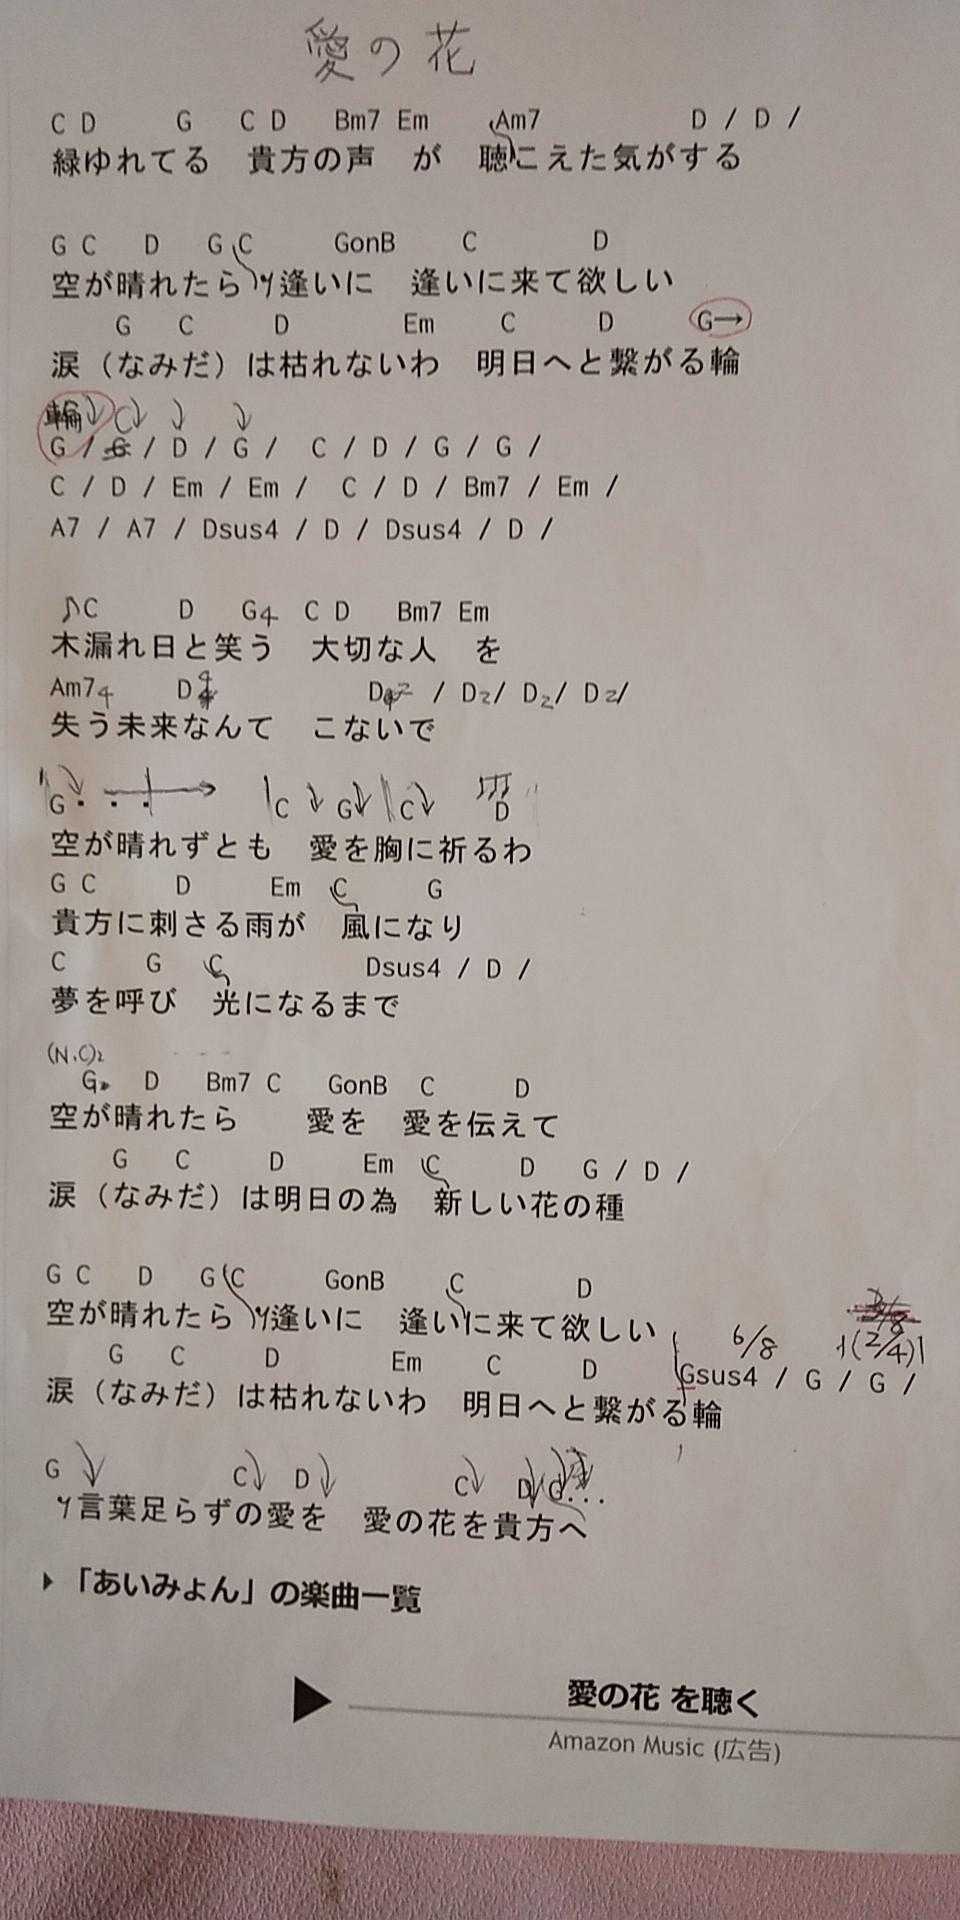 愛の花
C D G C D Bm7 Em Am7 D / D /
緑ゆれてる 貴方の声 が 聴こえた気がする
G C D G C GonB C D
空が晴れたら 逢いに 逢いに来て欲しい
G C D Em C D G→
涙（なみだ）は枯れないわ 明日へと繋がる輪
輪 C
G / G / D / G / C / D / G / G /
C / D / Em / Em / C / D / Bm7 / Em /
A7 / A7 / Dsus4 / D / Dsus4 / D /
♪C D G4 C D Bm7 Em
木漏れ日と笑う 大切な人 を
Am7 4 D 4 D 2 / D2/ D2/ D2/
失う未来なんて こないで
G C G C D
空が晴れずとも 愛を胸に祈るわ
G C D Em C G
貴方に刺さる雨が 風になり
C G C Dsus4 / D /
夢を呼び 光になるまで
(N.C)2
G D Bm7 C GonB C D
空が晴れたら 愛を 愛を伝えて
G C D Em C D G / D /
涙（なみだ）は明日の為 新しい花の種
G C D G C GonB C D
空が晴れたら 逢いに 逢いに来て欲しい
6/8 (2/4)
G C D Em C D Gsus4 / G / G /
涙（なみだ）は枯れないわ 明日へと繋がる輪
G C D C D G...
言葉足らずの愛を 愛の花を貴方へ
「あいみょん」の楽曲一覧
愛の花 を聴く
Amazon Music (広告)